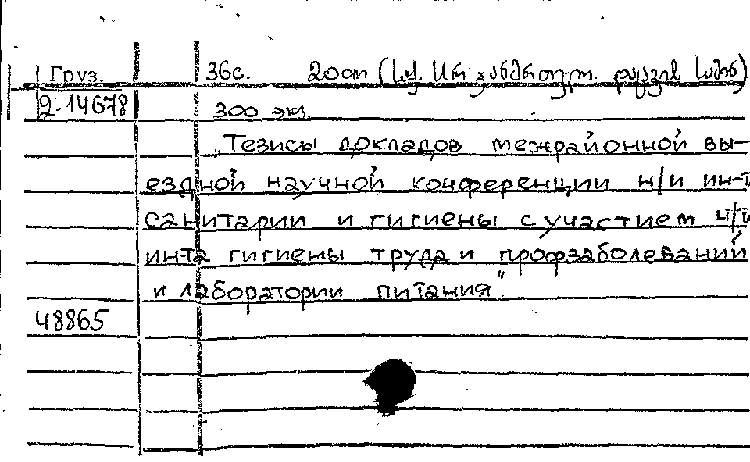 Груз. 36с. 20см (საქ.
2-14678 300 экз.
„Тезисы докладов межрайонной вы-
ездной научной конференции н/и ин-т
санитарии и гигиены с участием н/и
инта гигиены труда и профзаболеваний
и лаборатории питания"
48865